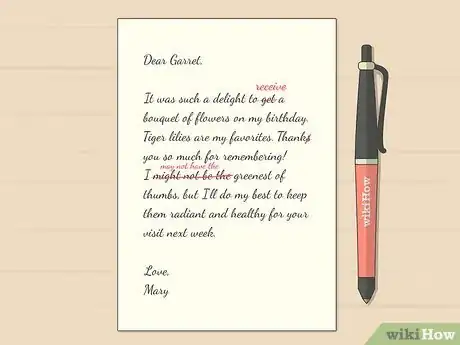 Dear Garret,
receive
It was such a delight to get a
bouquet of flowers on my birthday.
Tiger lilies are my favorites. Thanks
you so much for remembering!
may not have the
I might not be the greenest of
thumbs, but I'll do my best to keep
them radiant and healthy for your
visit next week.
Love,
Mary
wikiHow
wikiHow